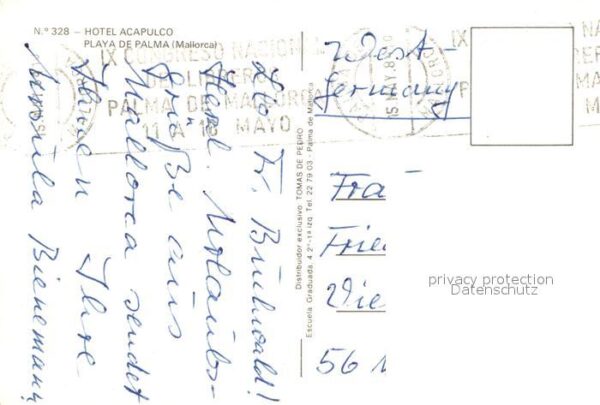 N.º 328 – HOTEL ACAPULCO
PLAYA DE PALMA (Mallorca)
IX CONGRESO NACIONAL
PALMA DE MALLORCA
11 A 16 MAYO
Lb. Fr. Buchwald!
Herzl. Urlaubs-
grüße aus
Mallorca sendet
Ihnen Ihre
Ursula Bienemann
Distribuidor exclusivo: TOMAS DE PEDRO
Escuela Graduada, 4 2°-1ª izq. Tel. 22 79 03 - Palma de Mallorca
West-
Germany
15 MAY.8
IX
P
MAYO
Fra
Frie
Vie
56
privacy protection
Datenschutz